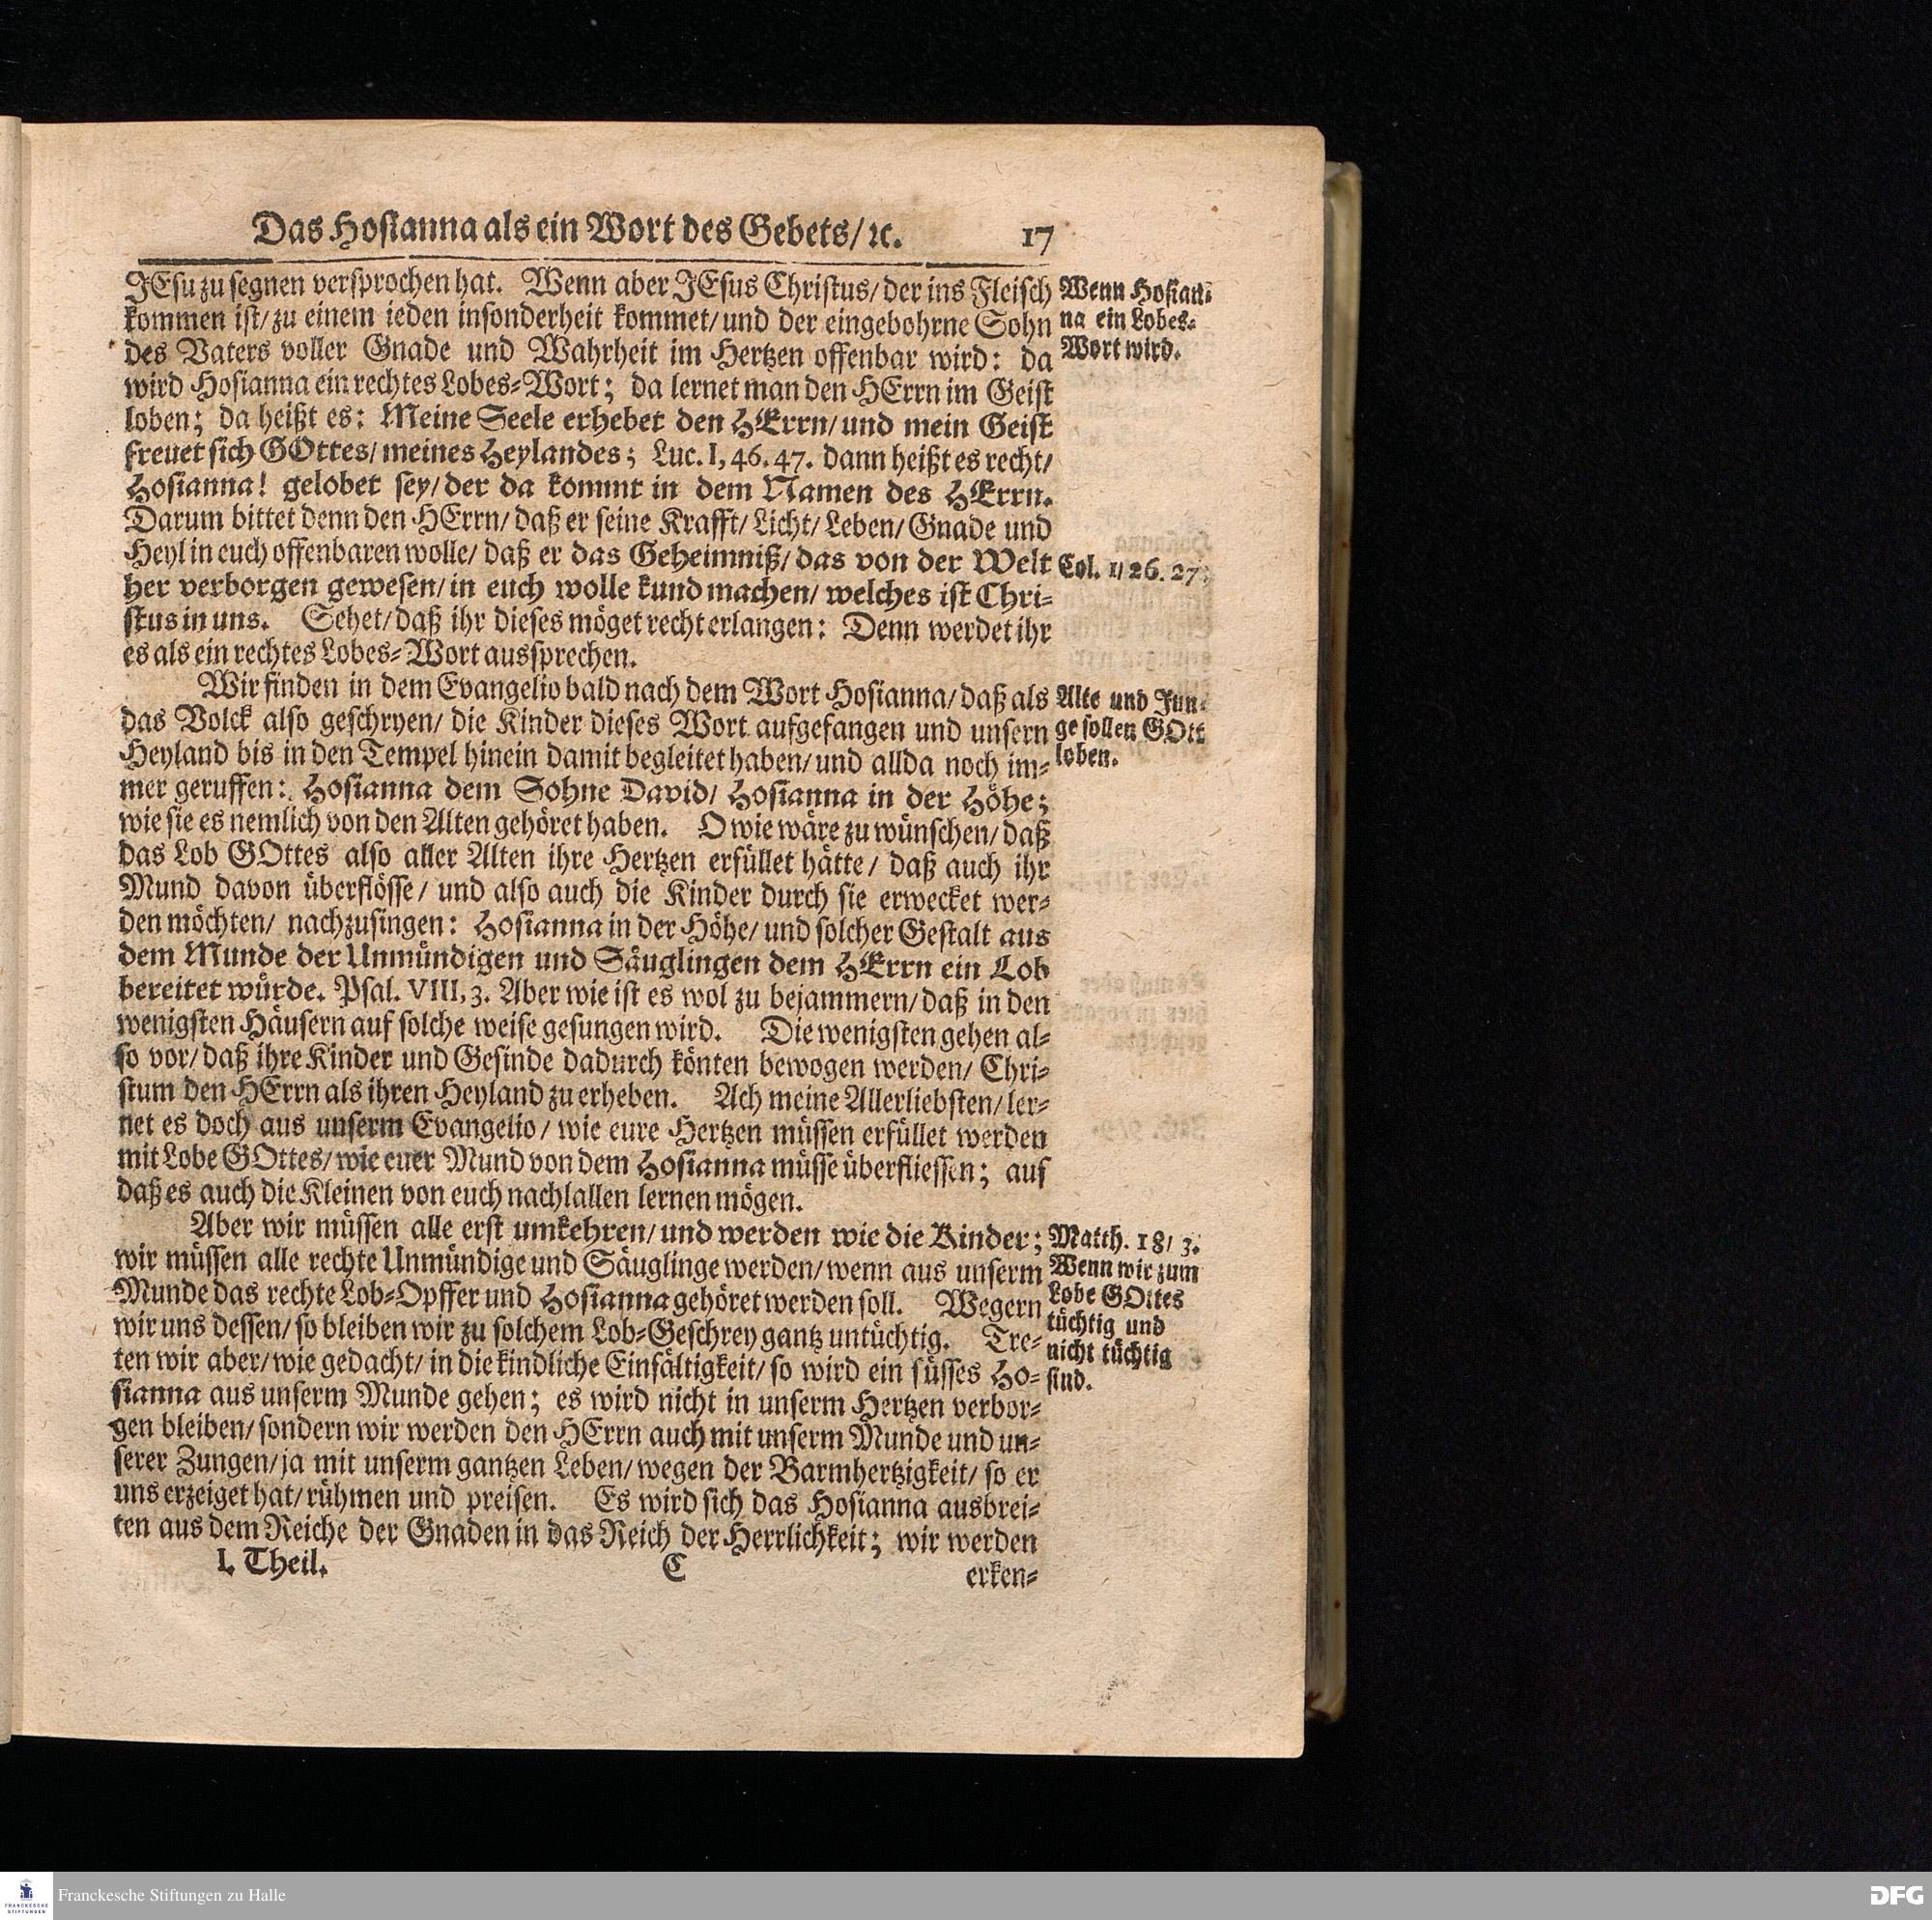 Das Hosianna als ein Wort des Gebets/ ꝛc. 17
JEsu zu segnen versprochen hat. Wenn aber JEsus Christus/ der ins Fleisch
kommen ist/ zu einem ieden insonderheit kommet/ und der eingebohrne Sohn
des Vaters voller Gnade und Wahrheit im Hertzen offenbar wird: da
wird Hosianna ein rechtes Lobes-Wort; da lernet man den HErrn im Geist
loben; da heißt es: Meine Seele erhebet den HErrn/ und mein Geist
freuet sich GOttes/ meines Heylandes; Luc. I, 46. 47. dann heißt es recht/
Hosianna! gelobet sey/ der da kommt in dem Namen des HErrn.
Darum bittet denn den HErrn/ daß er seine Krafft/ Licht/ Leben/ Gnade und
Heyl in euch offenbaren wolle/ daß er das Geheimniß/ das von der Welt
her verborgen gewesen/ in euch wolle kund machen/ welches ist Chri-
stus in uns. Sehet/ daß ihr dieses möget recht erlangen: Denn werdet ihr
es als ein rechtes Lobes-Wort aussprechen.
Wenn Hosian-
na ein Lobes-
Wort wird.
Col. 1/ 26. 27.
Wir finden in dem Evangelio bald nach dem Wort Hosianna/ daß als
das Volck also geschryen/ die Kinder dieses Wort aufgefangen und unsern
Heyland bis in den Tempel hinein damit begleitet haben/ und allda noch im-
mer geruffen: Hosianna dem Sohne David/ Hosianna in der Höhe;
wie sie es nemlich von den Alten gehöret haben. O wie wäre zu wünschen/ daß
das Lob GOttes also aller Alten ihre Hertzen erfüllet hätte/ daß auch ihr
Mund davon überflösse/ und also auch die Kinder durch sie erwecket wer-
den möchten/ nachzusingen: Hosianna in der Höhe/ und solcher Gestalt aus
dem Munde der Unmündigen und Säuglingen dem HErrn ein Lob
bereitet würde. Psal. VIII, 3. Aber wie ist es wol zu bejammern/ daß in den
wenigsten Häusern auf solche weise gesungen wird. Die wenigsten gehen al-
so vor/ daß ihre Kinder und Gesinde dadurch könten bewogen werden/ Chri-
stum den HErrn als ihren Heyland zu erheben. Ach meine Allerliebsten/ ler-
net es doch aus unserm Evangelio/ wie eure Hertzen müssen erfüllet werden
mit Lobe GOttes/ wie euer Mund von dem Hosianna müsse überfliessen; auf
daß es auch die Kleinen von euch nachlallen lernen mögen.
Alte und Jun-
ge sollen GOtt
loben.
Aber wir müssen alle erst umkehren/ und werden wie die Kinder;
wir müssen alle rechte Unmündige und Säuglinge werden/ wenn aus unserm
Munde das rechte Lob-Opffer und Hosianna gehöret werden soll. Wegern
wir uns dessen/ so bleiben wir zu solchem Lob-Geschrey gantz untüchtig. Tre-
ten wir aber/ wie gedacht/ in die kindliche Einfältigkeit/ so wird ein süsses Ho-
sianna aus unserm Munde gehen; es wird nicht in unserm Hertzen verbor-
gen bleiben/ sondern wir werden den HErrn auch mit unserm Munde und un-
serer Zungen/ ja mit unserm gantzen Leben/ wegen der Barmhertzigkeit/ so er
uns erzeiget hat/ rühmen und preisen. Es wird sich das Hosianna ausbrei-
ten aus dem Reiche der Gnaden in das Reich der Herrlichkeit; wir werden
Matth. 18/ 3.
Wenn wir zum
Lobe GOttes
tüchtig und
nicht tüchtig
sind.
I. Theil. C erken-
FRANCKESCHE STIFTUNGEN
Franckesche Stiftungen zu Halle
DFG